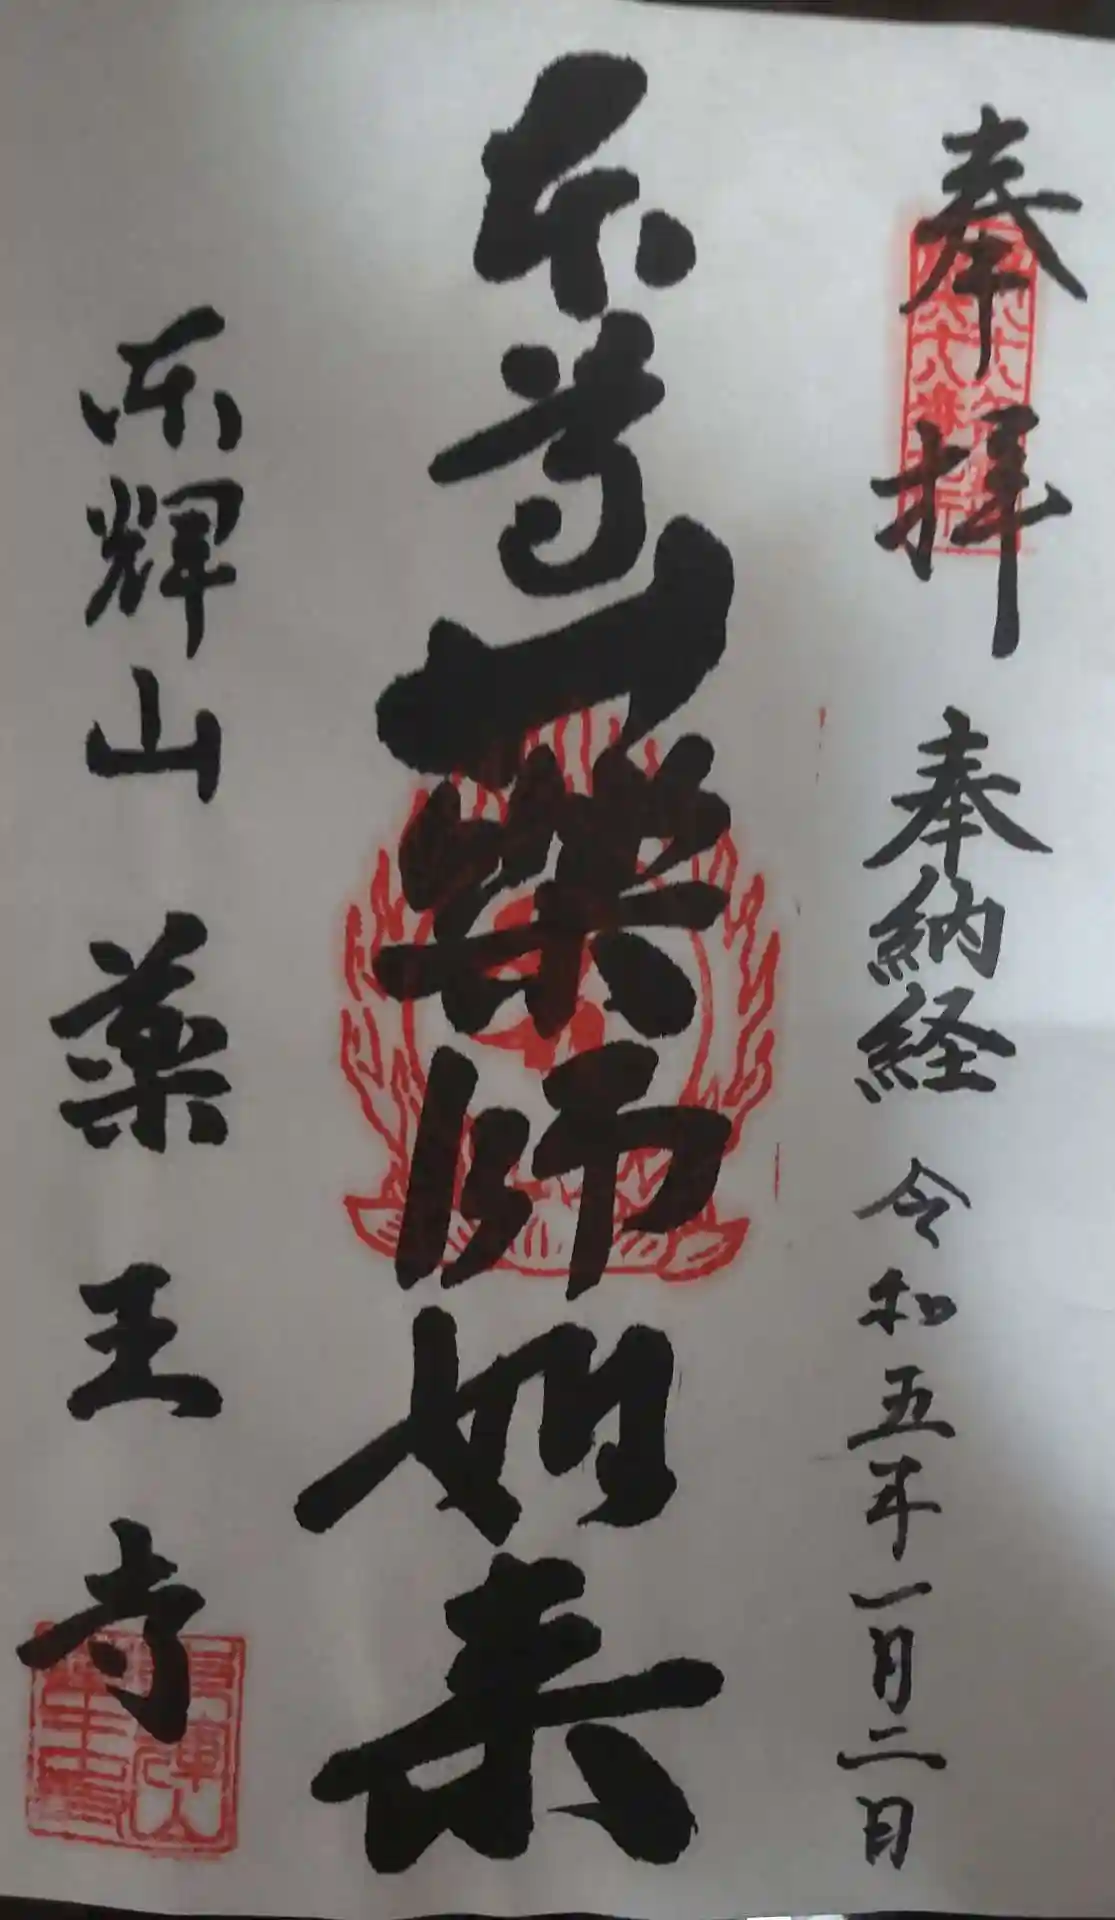 奉拝 奉納経 令和五年一月二日
本尊薬師如来
東輝山 薬王寺